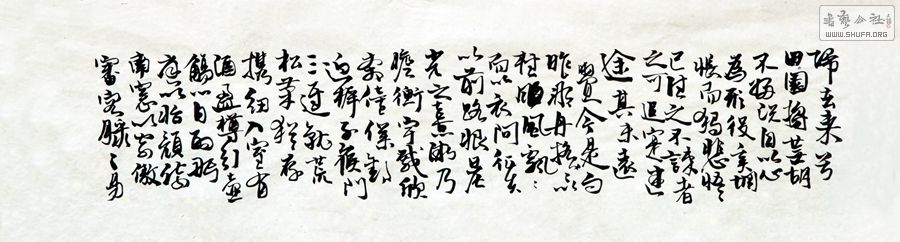 歸去来兮
田園將芜胡
不歸既自以心
為形役奚惆
悵而獨悲悟
已往之不諫者
之可追寔迷
途其未遠
覺今是而
昨非舟摇以
輕颺風飄〻
而吹衣问征夫
以前路恨晨
光之熹微乃
瞻衡宇載欣
奔僮僕歡
迎稚子候門
三逕就荒
松菊猶存
攜幼入室有
酒盈樽引壺
觴以自酌眄
庭柯以怡顏倚
南窓以寄傲
審容膝之易
書藝公社
WWW.SHUFA.ORG